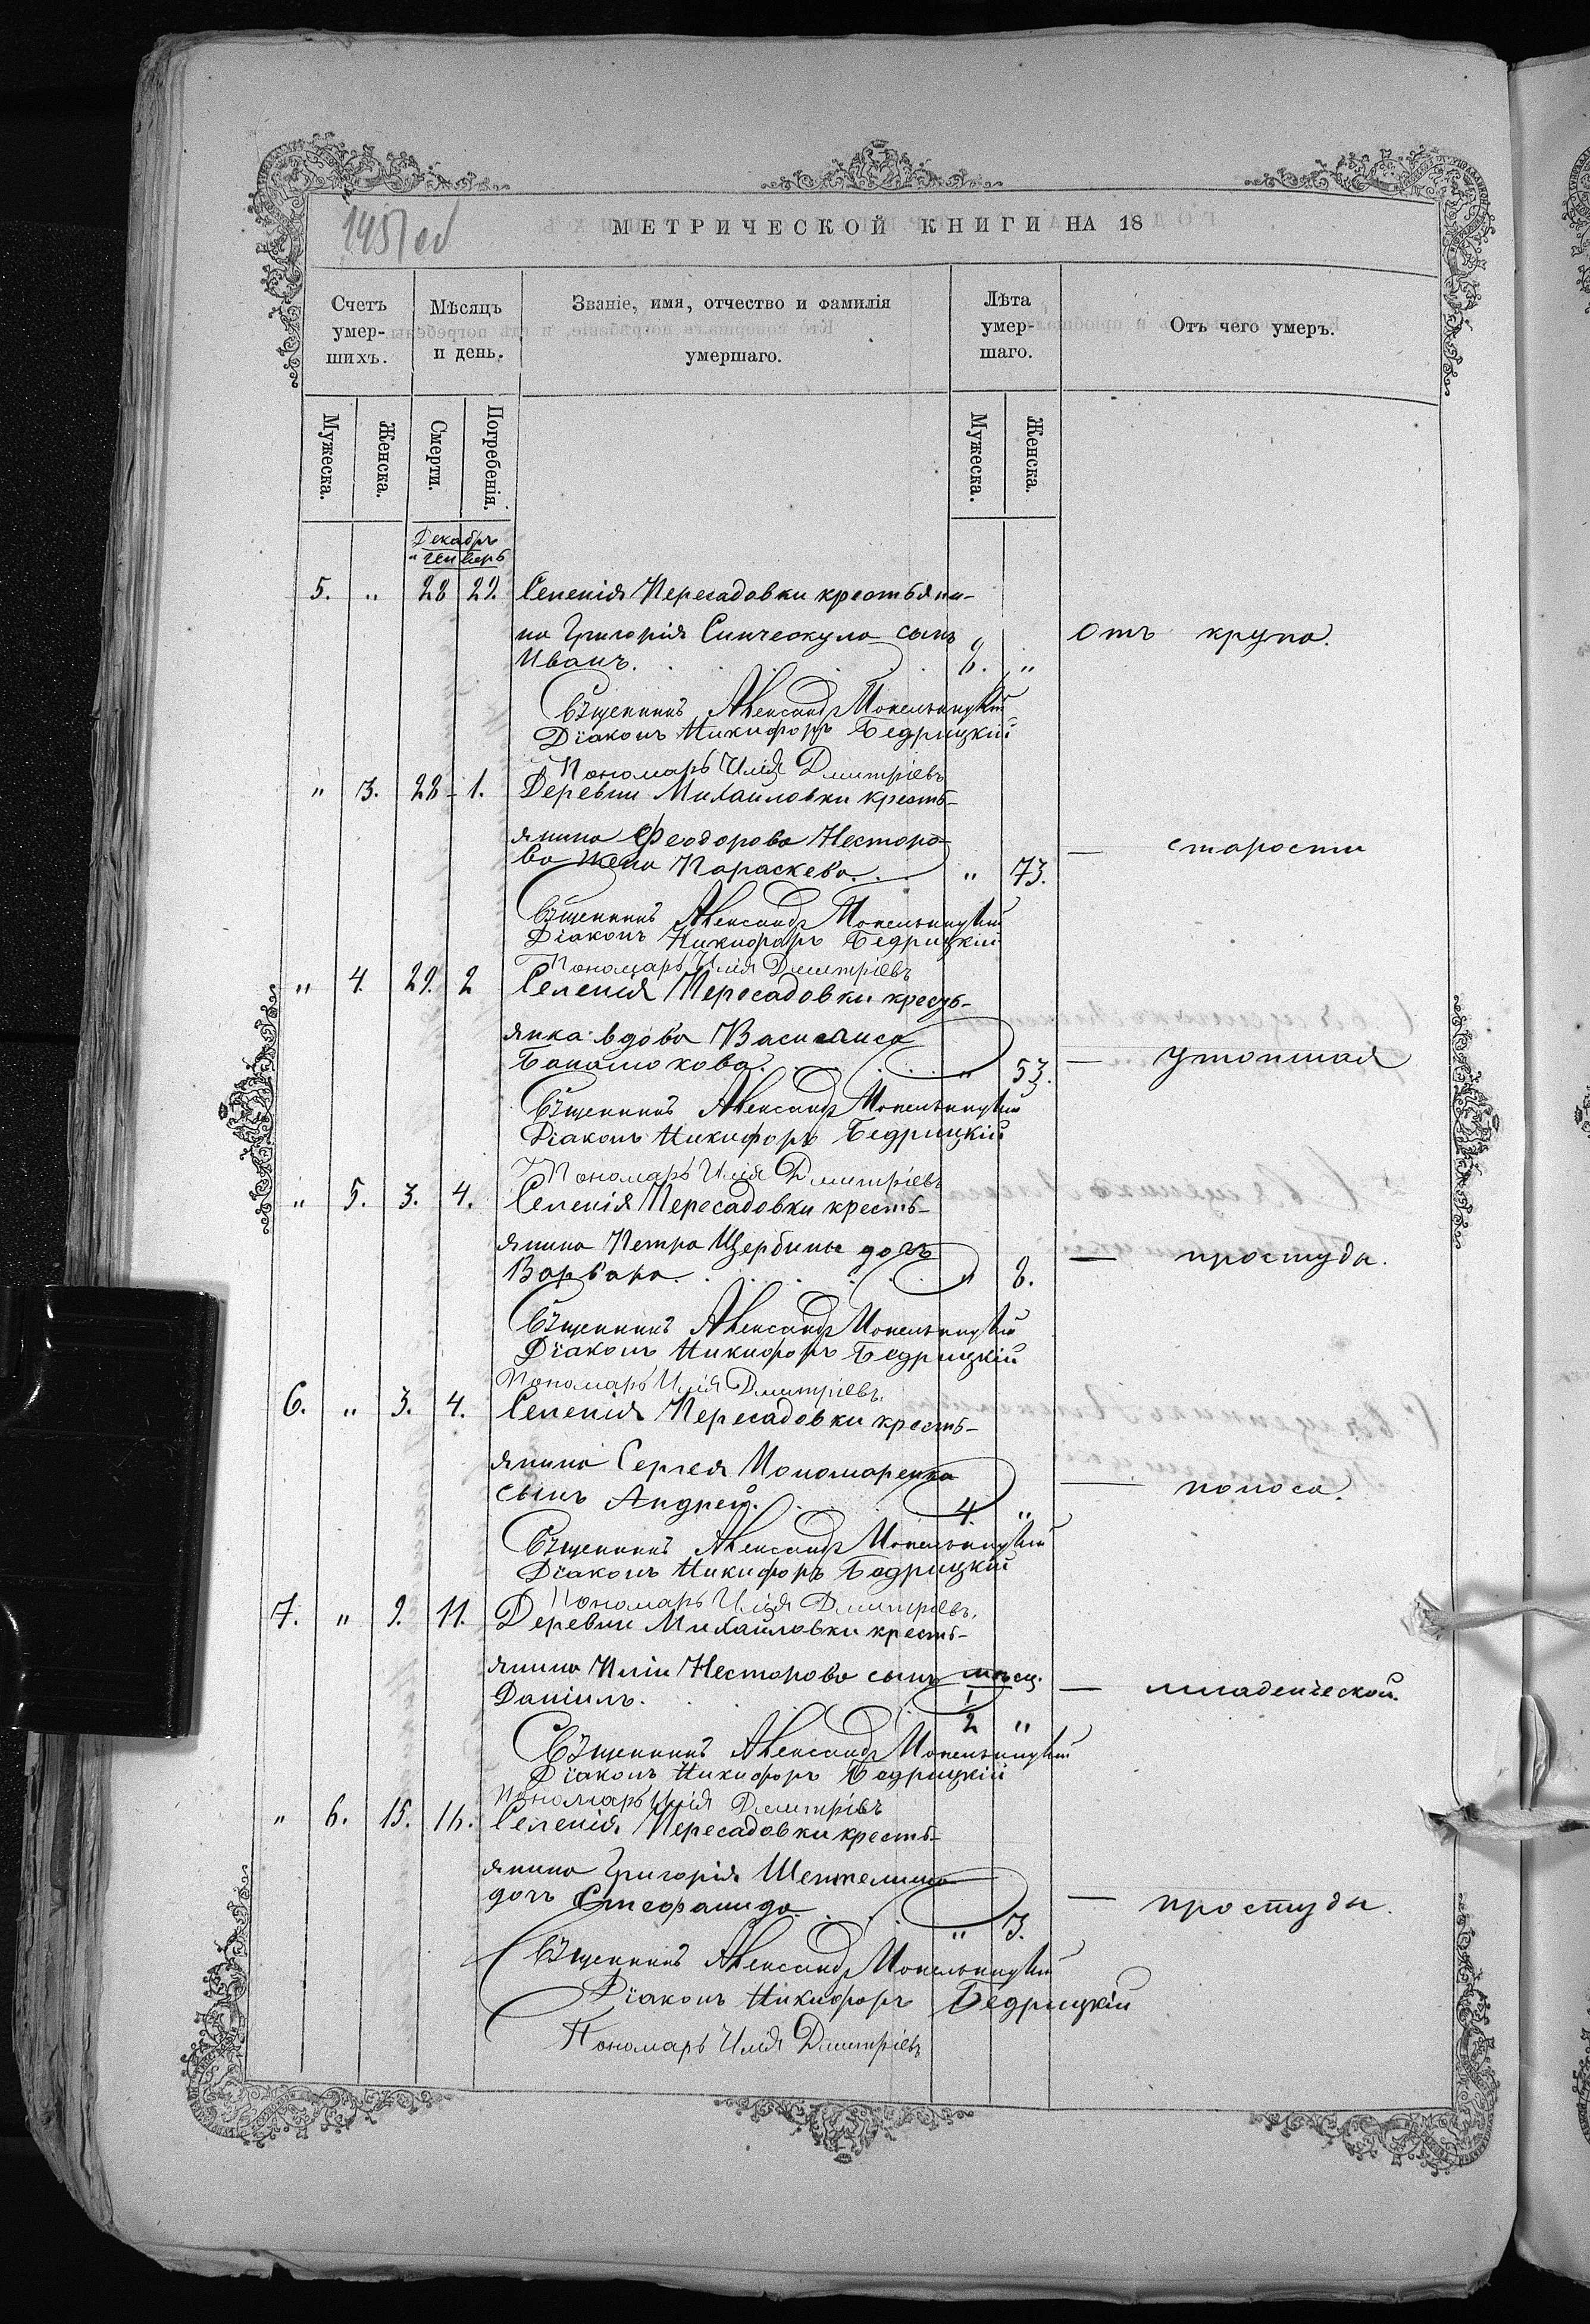 1451 об
МЕТРИЧЕСКОЙ КНИГИ НА 18
Счетъ умер-шихъ.
Мѣсяцъ и день.
Званіе, имя, отчество и фамилія умершаго.
Лѣта умер-шаго.
Отъ чего умеръ.
Мужеска. Женска. Смерти. Погребенія. Мужеска. Женска.
Декабрь
и Генварь
5. " 28 29. Селенія Пересадовки крестьяни-
на Григорія сынъ Отъ крупа.
Иванъ. 8. "
Священникъ Александръ
Діаконъ Никифоръ Бедрицкій
Пономарь Илія Дмитріевъ
" 3. 28 - 1. Деревни Михайловки кресть-
янина Феодорова Несторо- — старости
ва жена Параскева. " 73.
Священникъ Александръ
Діаконъ Никифоръ Бедрицкій
Пономарь Илія Дмитріевъ
" 4. 29. 2 Селенія Пересадовки кресть-
янка вдова Василиса — утопшая
" 53.
Священникъ Александръ
Діаконъ Никифоръ Бедрицкій
Пономарь Илія Дмитріевъ
" 5. 3. 4. Селенія Пересадовки кресть-
янина Петра Щербины дочь — простуды.
Варвара. " 8.
Священникъ Александръ
Діаконъ Никифоръ Бедрицкій
Пономарь Илія Дмитріевъ.
6. " 3. 4. Селенія Пересадовки кресть-
янина Сергея Пономаренка — поноса.
сынъ Андрей. 4. "
Священникъ Александръ
Діаконъ Никифоръ Бедрицкій
Пономарь Илія Дмитріевъ.
7. " 9. 11. Деревни Михайловки кресть-
янина Иліи Несторова сынъ мѣсяц. — младенческой.
Даніилъ. 1/2 "
Священникъ Александръ
Діаконъ Никифоръ Бедрицкій
Пономарь Илія Дмитріевъ
" 6. 15. 16. Селенія Пересадовки кресть-
янина Григорія — простуды.
дочь Стефанида " 3.
Священникъ Александръ
Діаконъ Никифоръ Бедрицкій
Пономарь Илія Дмитріевъ